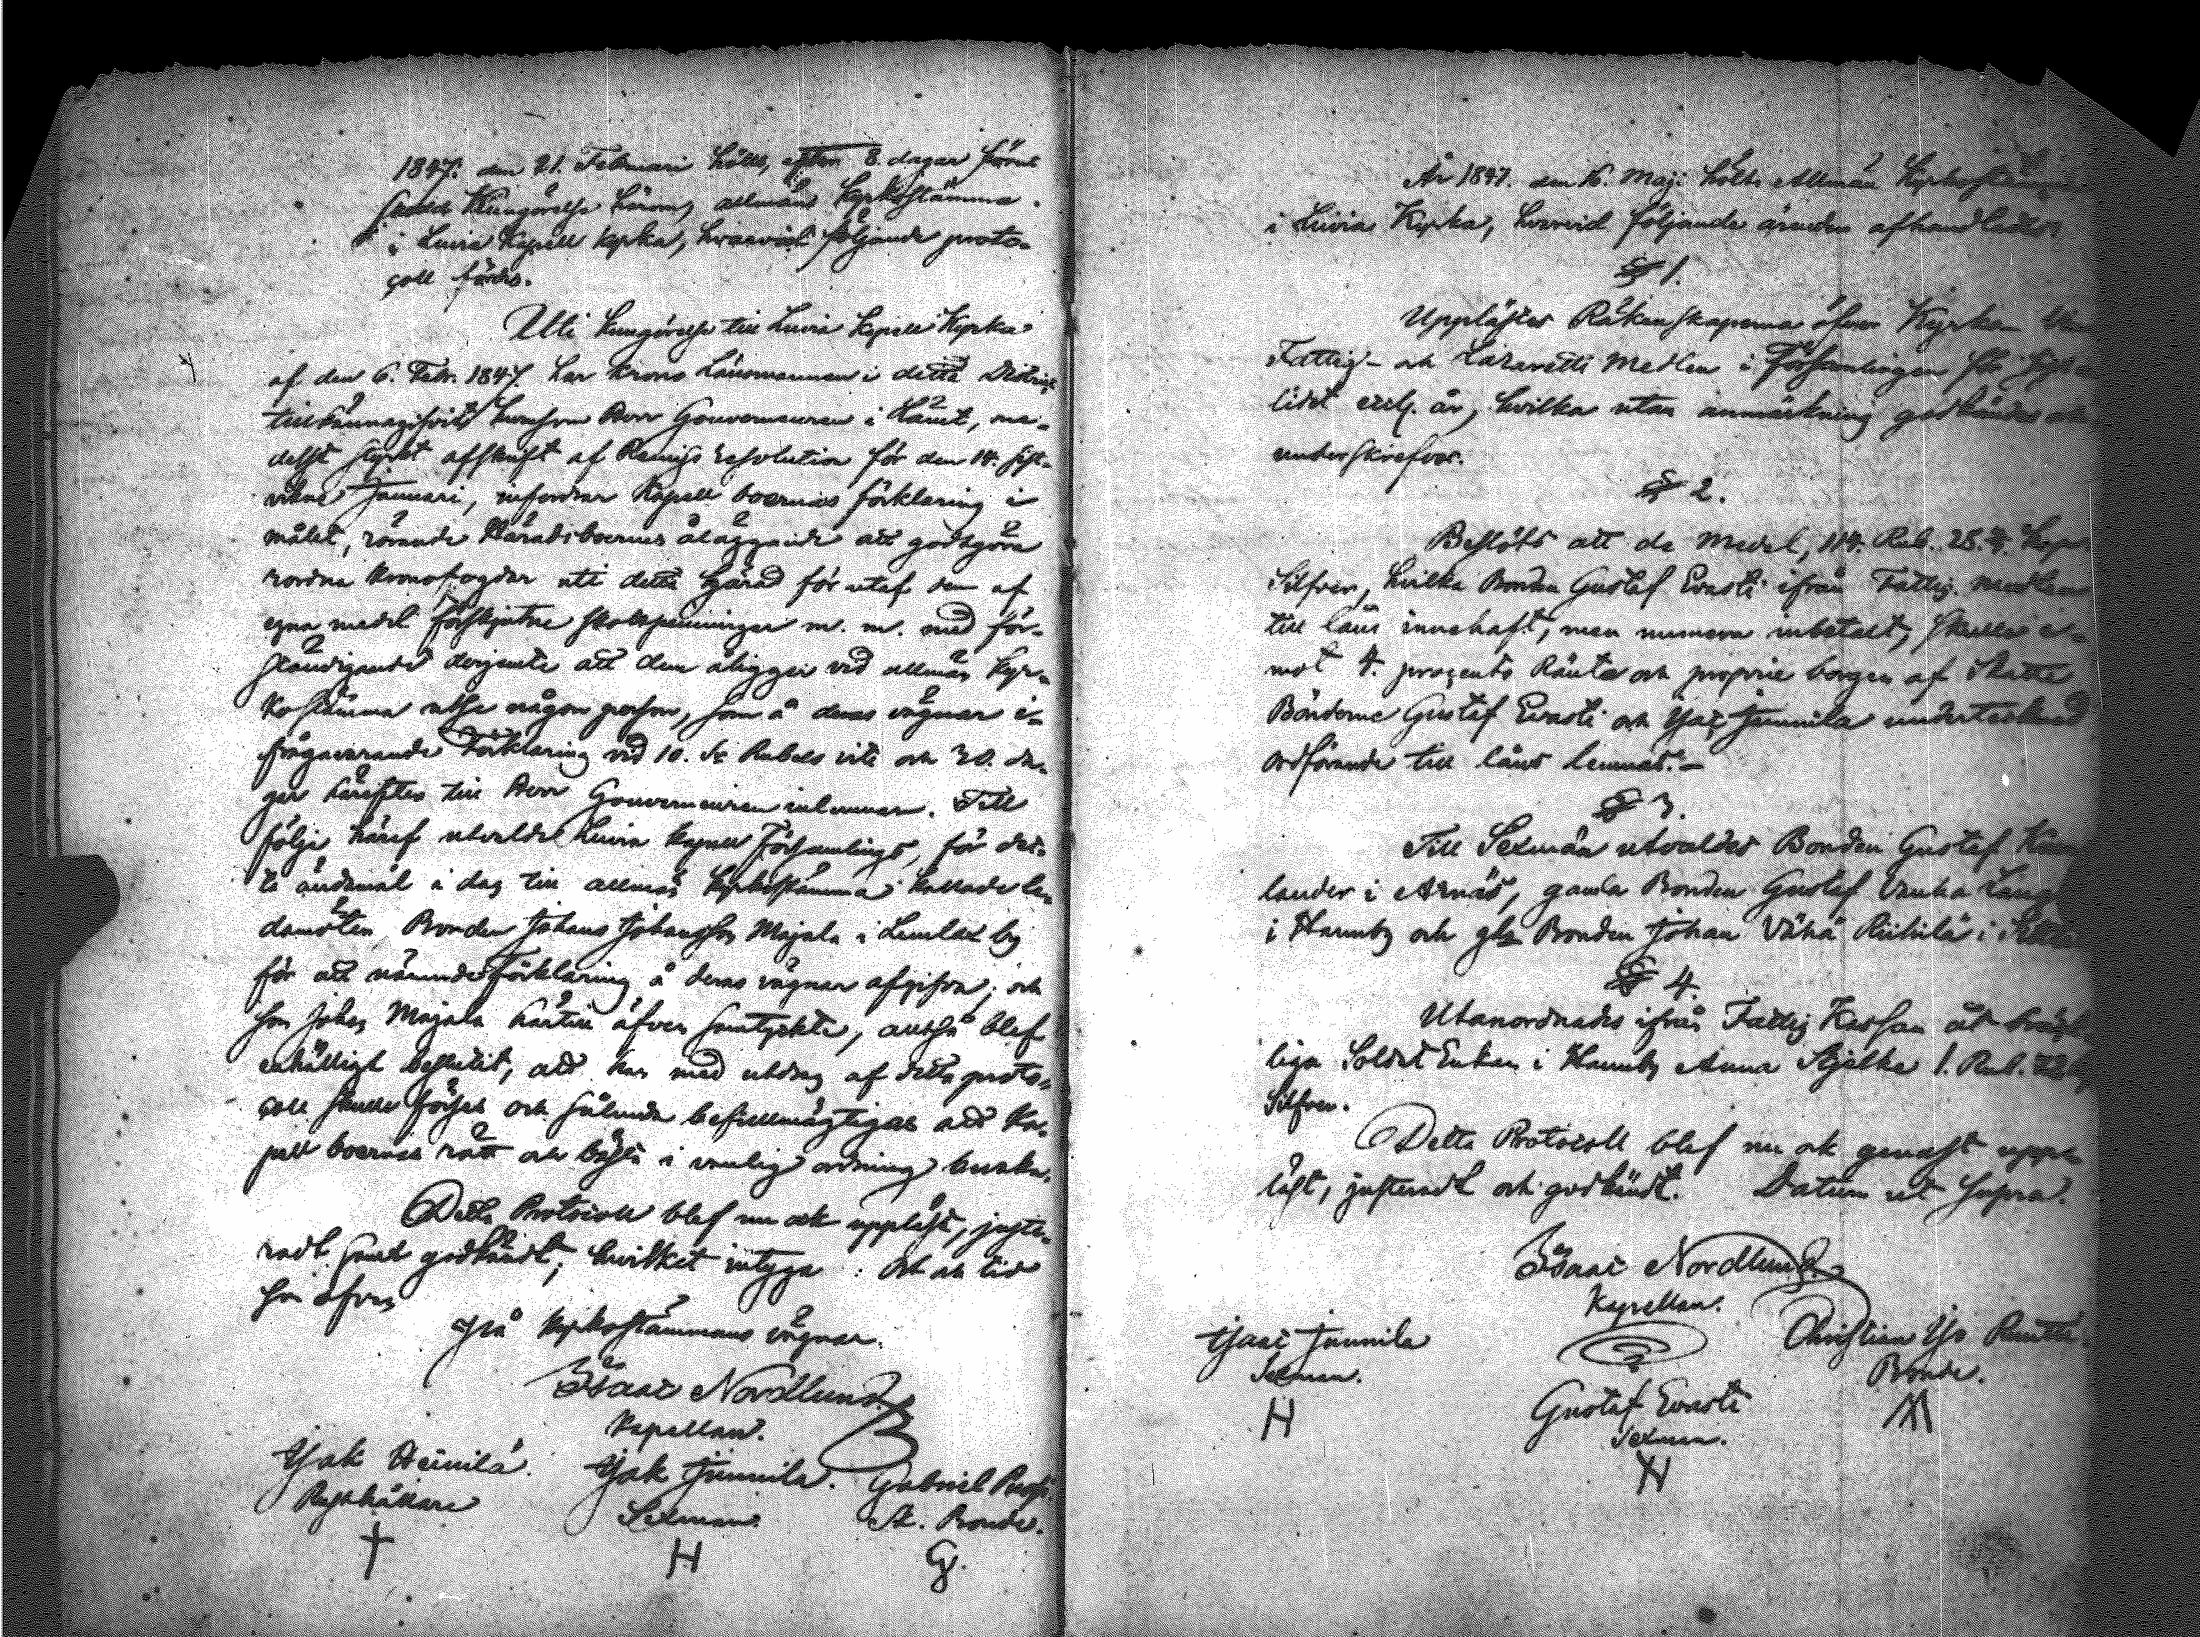 1847. den 21. Februari hölls, efter 8. dagar förut
skedd Kungörelse härom, allmän Kyrkostämma
i Luvia Kapell kyrka, hvarvid följande proto-
coll fördes.
Uti kungörelse till Luvia Kapell Kyrka
af den 6. Febr. 1847 har Krono Länsmannen i detta District
tillkännagifvit hurusom Herr Gouverneuren i Länet, me-
delst styrkt affskrift af Remiss resolution för den 14. sist-
vikne Januari, infordrar Kapell boernas förklaring i
målet, rörande Häradsboernes åläggande att godtgöra
Kronofogdar uti detta Härad för utaf dem af
egna medel förskjutne skottpenningar m. m. med för-
ständigande derjemte att dem åligger vid allmän Kyr-
kostämma utse någon person, som å deras vägnar i-
frågavarande Förklaring vid 10. Rubels vite och 30. da-
gar härefter till Herr Gouverneuren inlemnar. Till
följe häraf utvalde Luvia kapell Församlings, för det-
ta ändamål i dag till allmän kyrkostämma kallade le-
damöter Bonden Johan Johansson Majala i Lemlax by
för att nämnde förklaring å deras vägnar afgifva; och
som Johan Majala härtill äfven samtyckte, alltså blef
enhälligt beslutit, att han med utdrag af detta proto-
coll skulle förses och sålunda befullmägtigas att Ka-
pell boernas rätt och bästa i vanlig ordning bevaka.
Detta Protocoll blef nu ock uppläst, juste-
radt samt godkändt; hvilket intyga: Ort och tid
som ofvan
På Kyrkostämmans vägnar.
Isaac Nordlund
Kapellan.
Isak Heinilä. Isak Junnila. Gabriel
Rusthållare Sexman. Sk. Bonde.
H
År 1847. den 16. Maji hölts Allmän Kyrkostämma
i Luvia Kyrka, hvarvid följande ärenden afhandlades
§ 1.
Upplästes Räkenskaperna öfver Kyrkan
Fattig- och Lazaretts Medlen i Församlingen för sist-
lidet eccl. år, hvilka utan anmärkning godkändes och
underskrefvos.
§ 2.
Beslöts att de Medel, 114. Rub. 28. Kop.
Silfver, hvilka Bonden Gustaf Evasti ifrån Fattig. Medlen
till låns innehaft, men numera inbetalt, skulle e-
mot 4. procents Ränta och proprie borgen af Skatte
Bönderne Gustaf Evasti och Isac Junnila undertecknad
ordförande till låns lemnas.
§ 3.
Till Sexmän utvaldes Bonden Gustaf
lander i Arnäs, gamla Bonden Gustaf Vanha
i Hannby och gla Bonden Johan Vähä Riihilä i
§ 4.
Utanordnades ifrån Fattig Kassan åt
liga Soldat Enkan i Hannby Anna Stjelke 1. Rub.
Silfver.
Detta Protocoll blef nu ock genast upp-
läst, justeradt och godkändt. Datum ut Supra.
Isaac Nordlund
Kapellan.
Isaac Junnila Christian
Sexman. Bonde.
H
Gustaf Evasti
Sexman.